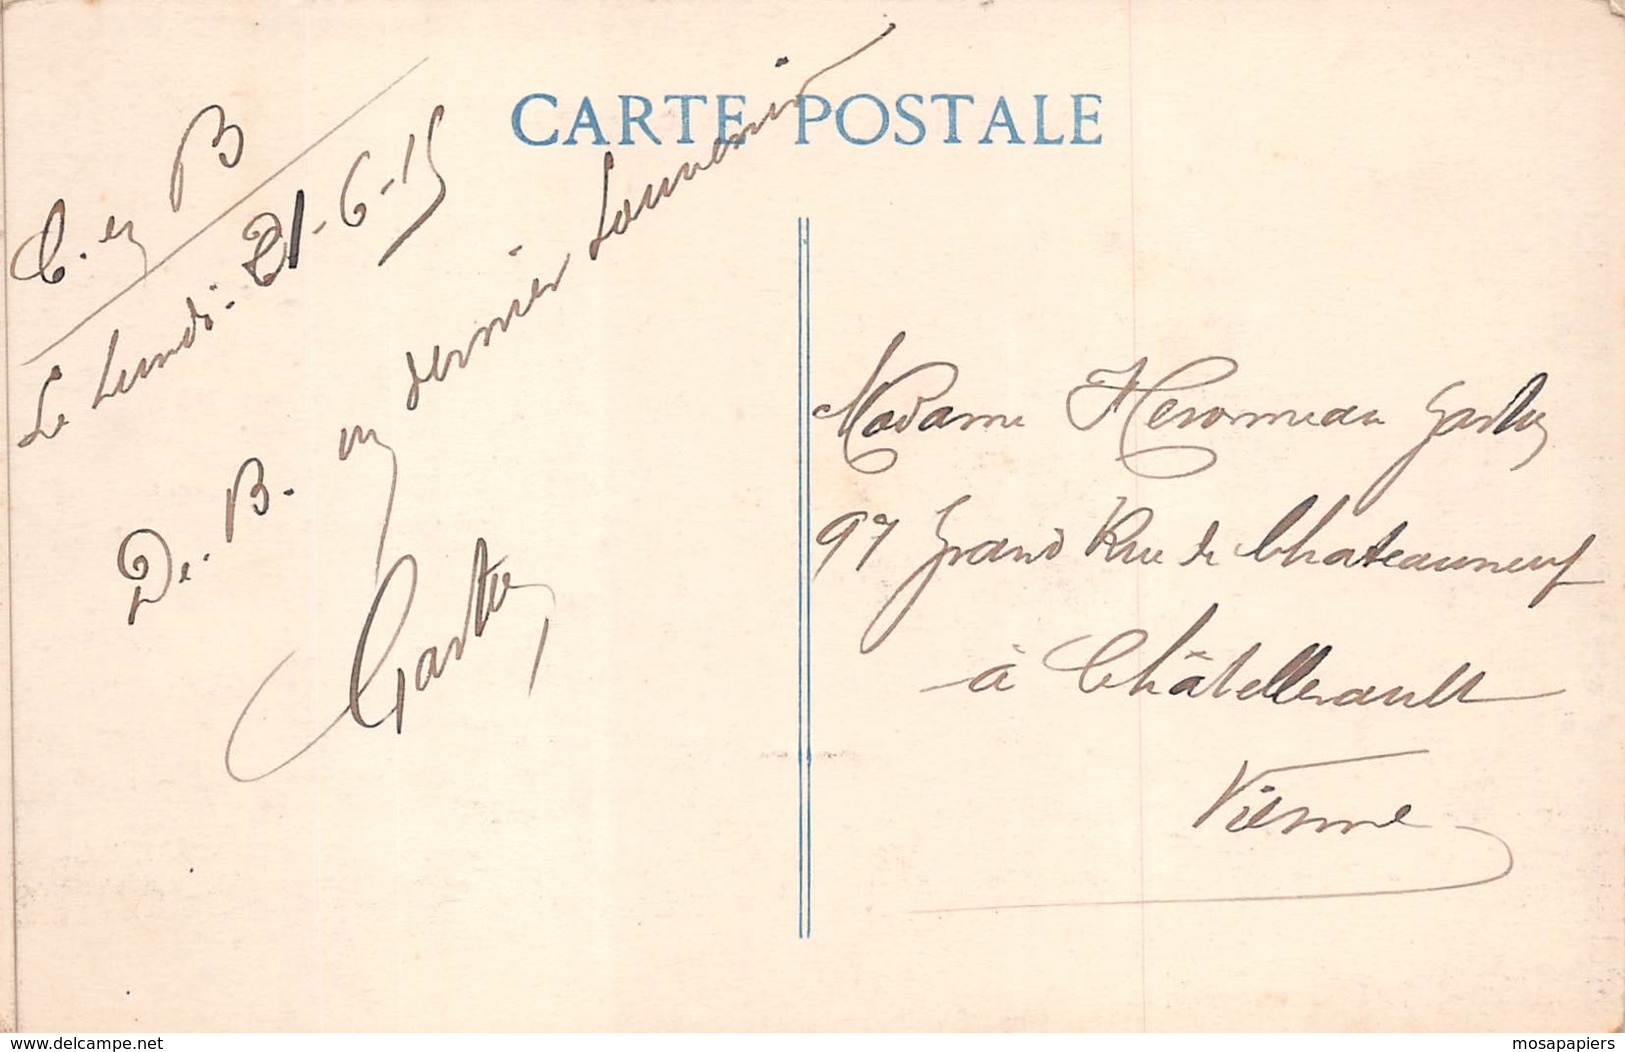 CARTE POSTALE
C. en B
Le Lundi 21-6-15
De. B. un dernier Souvenir
Gaston
Madame Heromneau Gaston
97 Grand Rue de Chateauneuf
à Châtellerault
Vienne
delcampe.net
mosapapiers